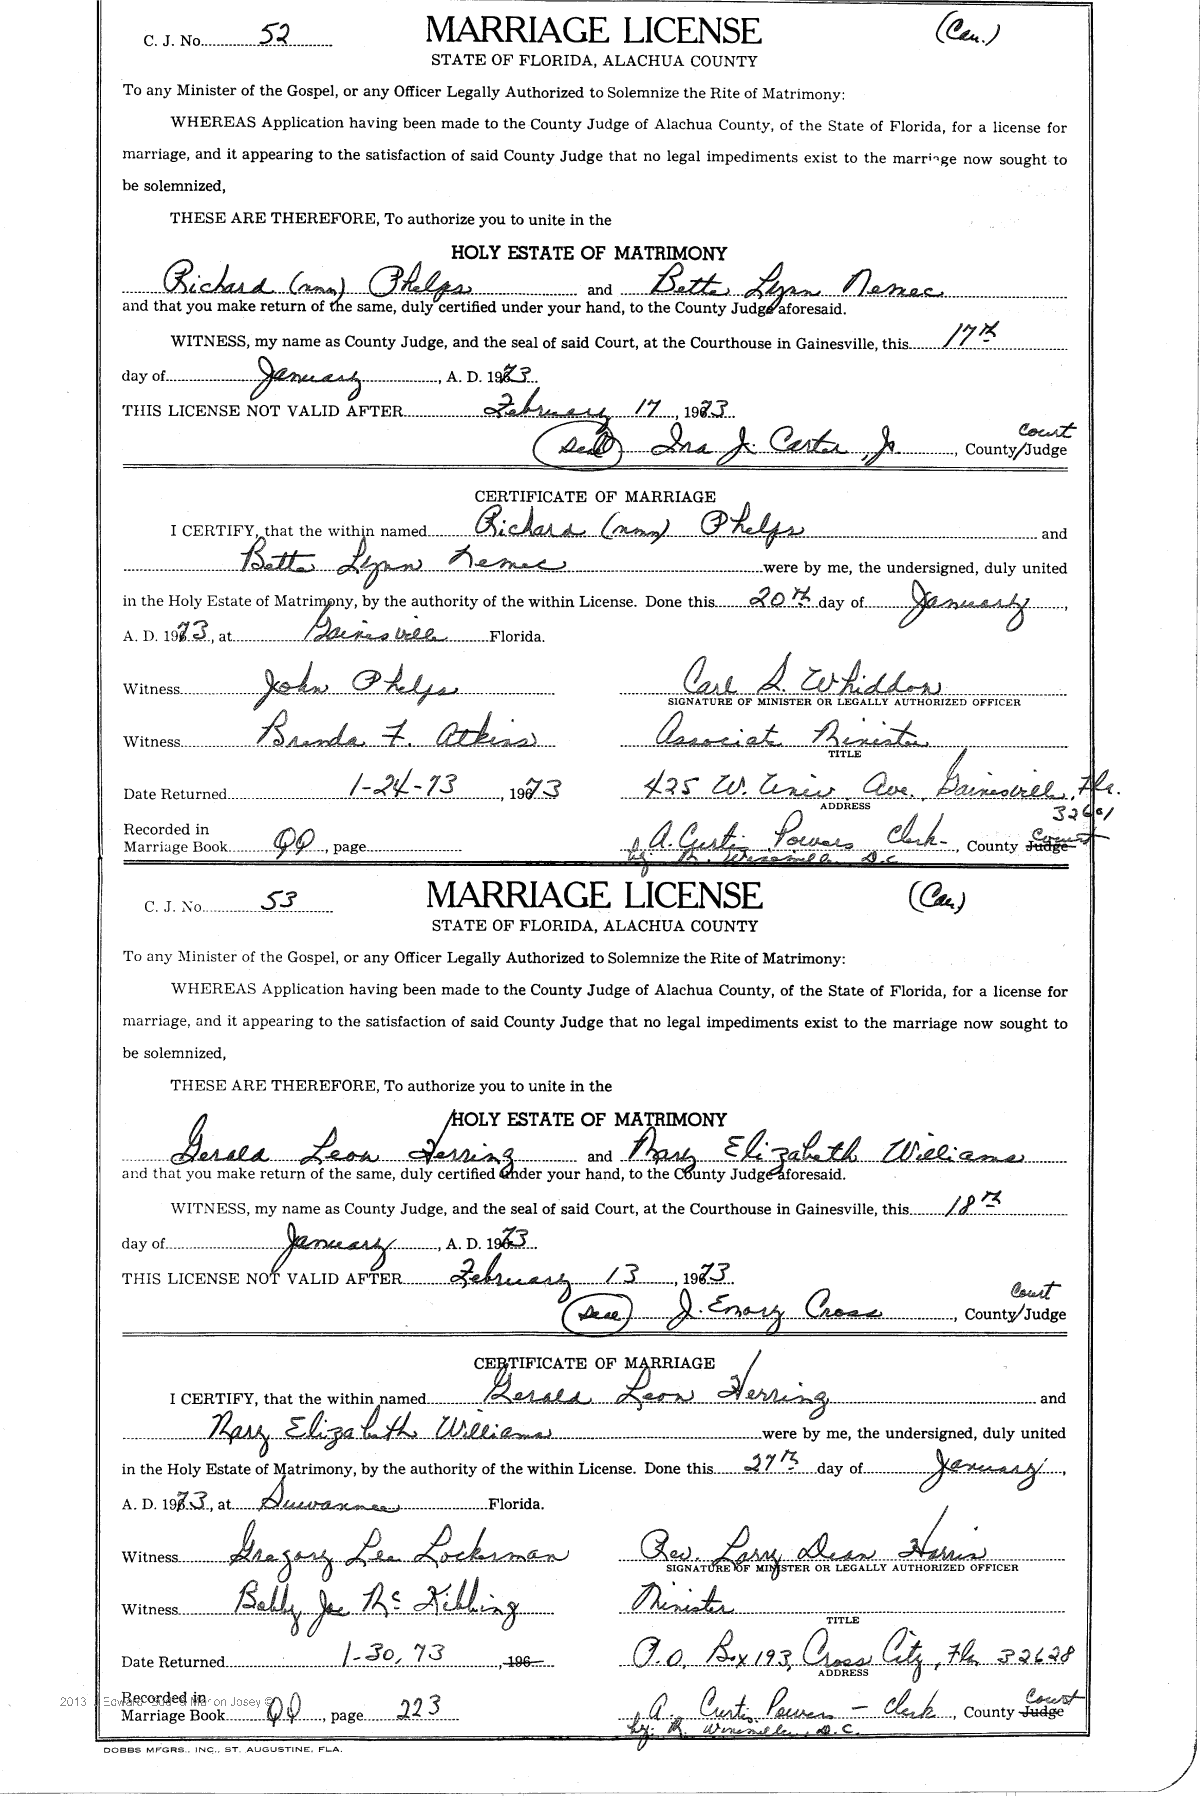 C. J. No. 52 MARRIAGE LICENSE (Cau.)
STATE OF FLORIDA, ALACHUA COUNTY
To any Minister of the Gospel, or any Officer Legally Authorized to Solemnize the Rite of Matrimony:
WHEREAS Application having been made to the County Judge of Alachua County, of the State of Florida, for a license for
marriage, and it appearing to the satisfaction of said County Judge that no legal impediments exist to the marriage now sought to
be solemnized,
THESE ARE THEREFORE, To authorize you to unite in the
HOLY ESTATE OF MATRIMONY
Richard (nmn) Phelps and Bette Lynn Nemec
and that you make return of the same, duly certified under your hand, to the County Judge aforesaid.
WITNESS, my name as County Judge, and the seal of said Court, at the Courthouse in Gainesville, this 17th
day of January, A. D. 1973
THIS LICENSE NOT VALID AFTER February 17, 1973
Court
(Seal) Ira J. Carter, Jr., County/Judge
CERTIFICATE OF MARRIAGE
I CERTIFY, that the within named Richard (nmn) Phelps and
Bette Lynn Nemec were by me, the undersigned, duly united
in the Holy Estate of Matrimony, by the authority of the within License. Done this 20th day of January,
A. D. 1973, at Gainesville Florida.
Witness John Phelps Carl S. Whiddon
SIGNATURE OF MINISTER OR LEGALLY AUTHORIZED OFFICER
Witness Brenda F. Atkins Associate Minister
TITLE
Date Returned 1-24-73, 1973 425 W. Univ. Ave. Gainesville, Fla.
ADDRESS 32601
Recorded in Court
Marriage Book QQ, page A. Curtis Powers Clerk, County Judge
by: M. Winemiller D.C.
C. J. No. 53 MARRIAGE LICENSE (Cau.)
STATE OF FLORIDA, ALACHUA COUNTY
To any Minister of the Gospel, or any Officer Legally Authorized to Solemnize the Rite of Matrimony:
WHEREAS Application having been made to the County Judge of Alachua County, of the State of Florida, for a license for
marriage, and it appearing to the satisfaction of said County Judge that no legal impediments exist to the marriage now sought to
be solemnized,
THESE ARE THEREFORE, To authorize you to unite in the
HOLY ESTATE OF MATRIMONY
Gerald Leon Herring and Mary Elizabeth Williams
and that you make return of the same, duly certified under your hand, to the County Judge aforesaid.
WITNESS, my name as County Judge, and the seal of said Court, at the Courthouse in Gainesville, this 18th
day of January, A. D. 1973
THIS LICENSE NOT VALID AFTER February 13, 1973
Court
(Seal) J. Emory Cross, County/Judge
CERTIFICATE OF MARRIAGE
I CERTIFY, that the within named Gerald Leon Herring and
Mary Elizabeth Williams were by me, the undersigned, duly united
in the Holy Estate of Matrimony, by the authority of the within License. Done this 27th day of January,
A. D. 1973, at Suwannee Florida.
Witness Gregory Lee Lockerman Rev. Larry Dean Harris
SIGNATURE OF MINISTER OR LEGALLY AUTHORIZED OFFICER
Witness Bobby Joe McKibbing Minister
TITLE
Date Returned 1-30, 73, 196 P.O. Box 193, Cross City, Fla 32628
ADDRESS
Recorded in Court
Marriage Book QQ, page 223 A. Curtis Powers - Clerk, County Judge
by: M. Winemiller, D.C.
DOBBS MFGRS., INC., ST. AUGUSTINE, FLA.